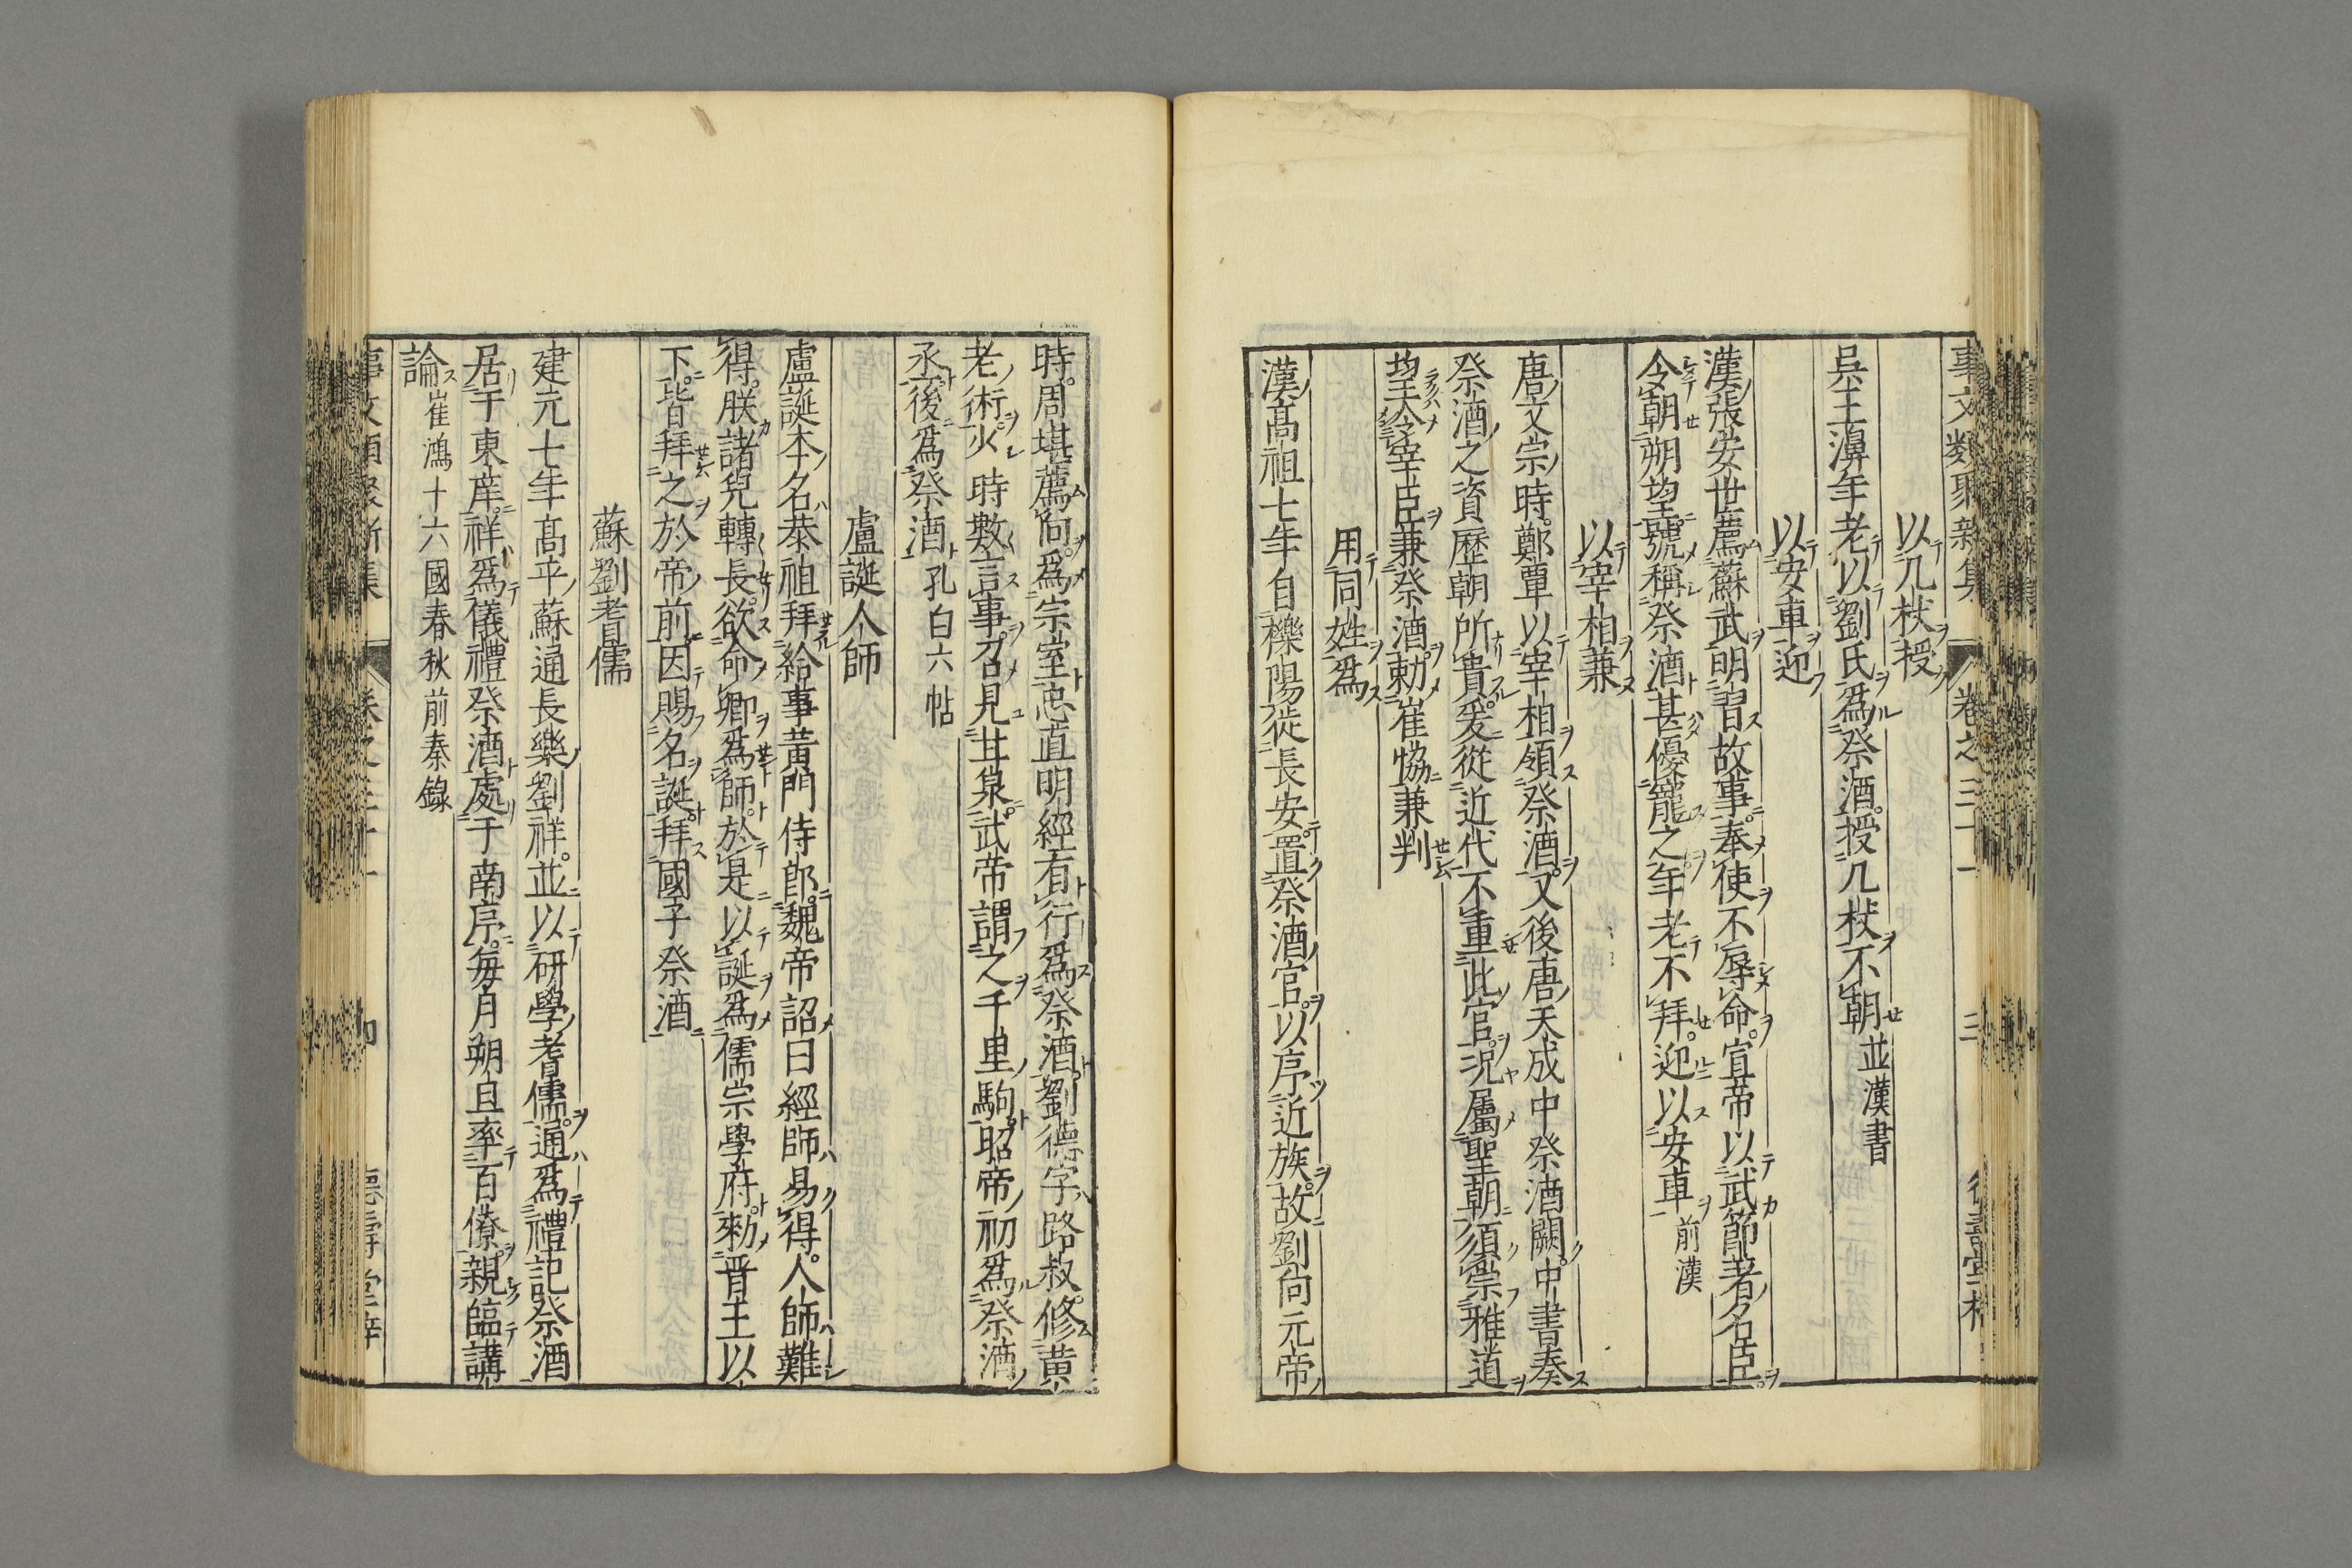 事文類聚新集 卷之三十一 三
以几杖授
吳王濞年老以劉氏爲祭酒授几杖不朝並漢書
以安車迎
漢張安世薦蘇武明習故事奉使不辱命宣帝以武節者名臣
令朝朔望號稱祭酒甚優寵之年老不拜迎以安車前漢
以宰相兼
唐文宗時鄭覃以宰相領祭酒又後唐天成中祭酒闕中書奏
祭酒之資歷朝所貴爰從近代不重此官况屬聖朝須崇雅道
望令宰臣兼祭酒勅崔恊兼判
用同姓爲
漢高祖七年自櫟陽徙長安置祭酒官以序近族故劉向元帝
時周堪薦向爲宗室忠直明經有行爲祭酒劉德字路叔修黃
老術少時數言事召見甘泉武帝謂之千里駒昭帝初爲祭酒
丞後爲祭酒孔白六帖
盧誕人師
盧誕本名恭祖拜給事黃門侍郎魏帝詔曰經師易得人師難
得朕諸兒轉長欲命卿爲師於是以誕爲儒宗學府勑晋王以
下皆拜之於帝前因賜名誕拜國子祭酒
蘇劉耆儒
建元十年高平蘇通長樂劉祥並以研學耆儒通爲禮記祭酒
居于東庠祥爲儀禮祭酒處于南序每月朔且率百僚親臨講
論崔鴻十六國春秋前秦錄